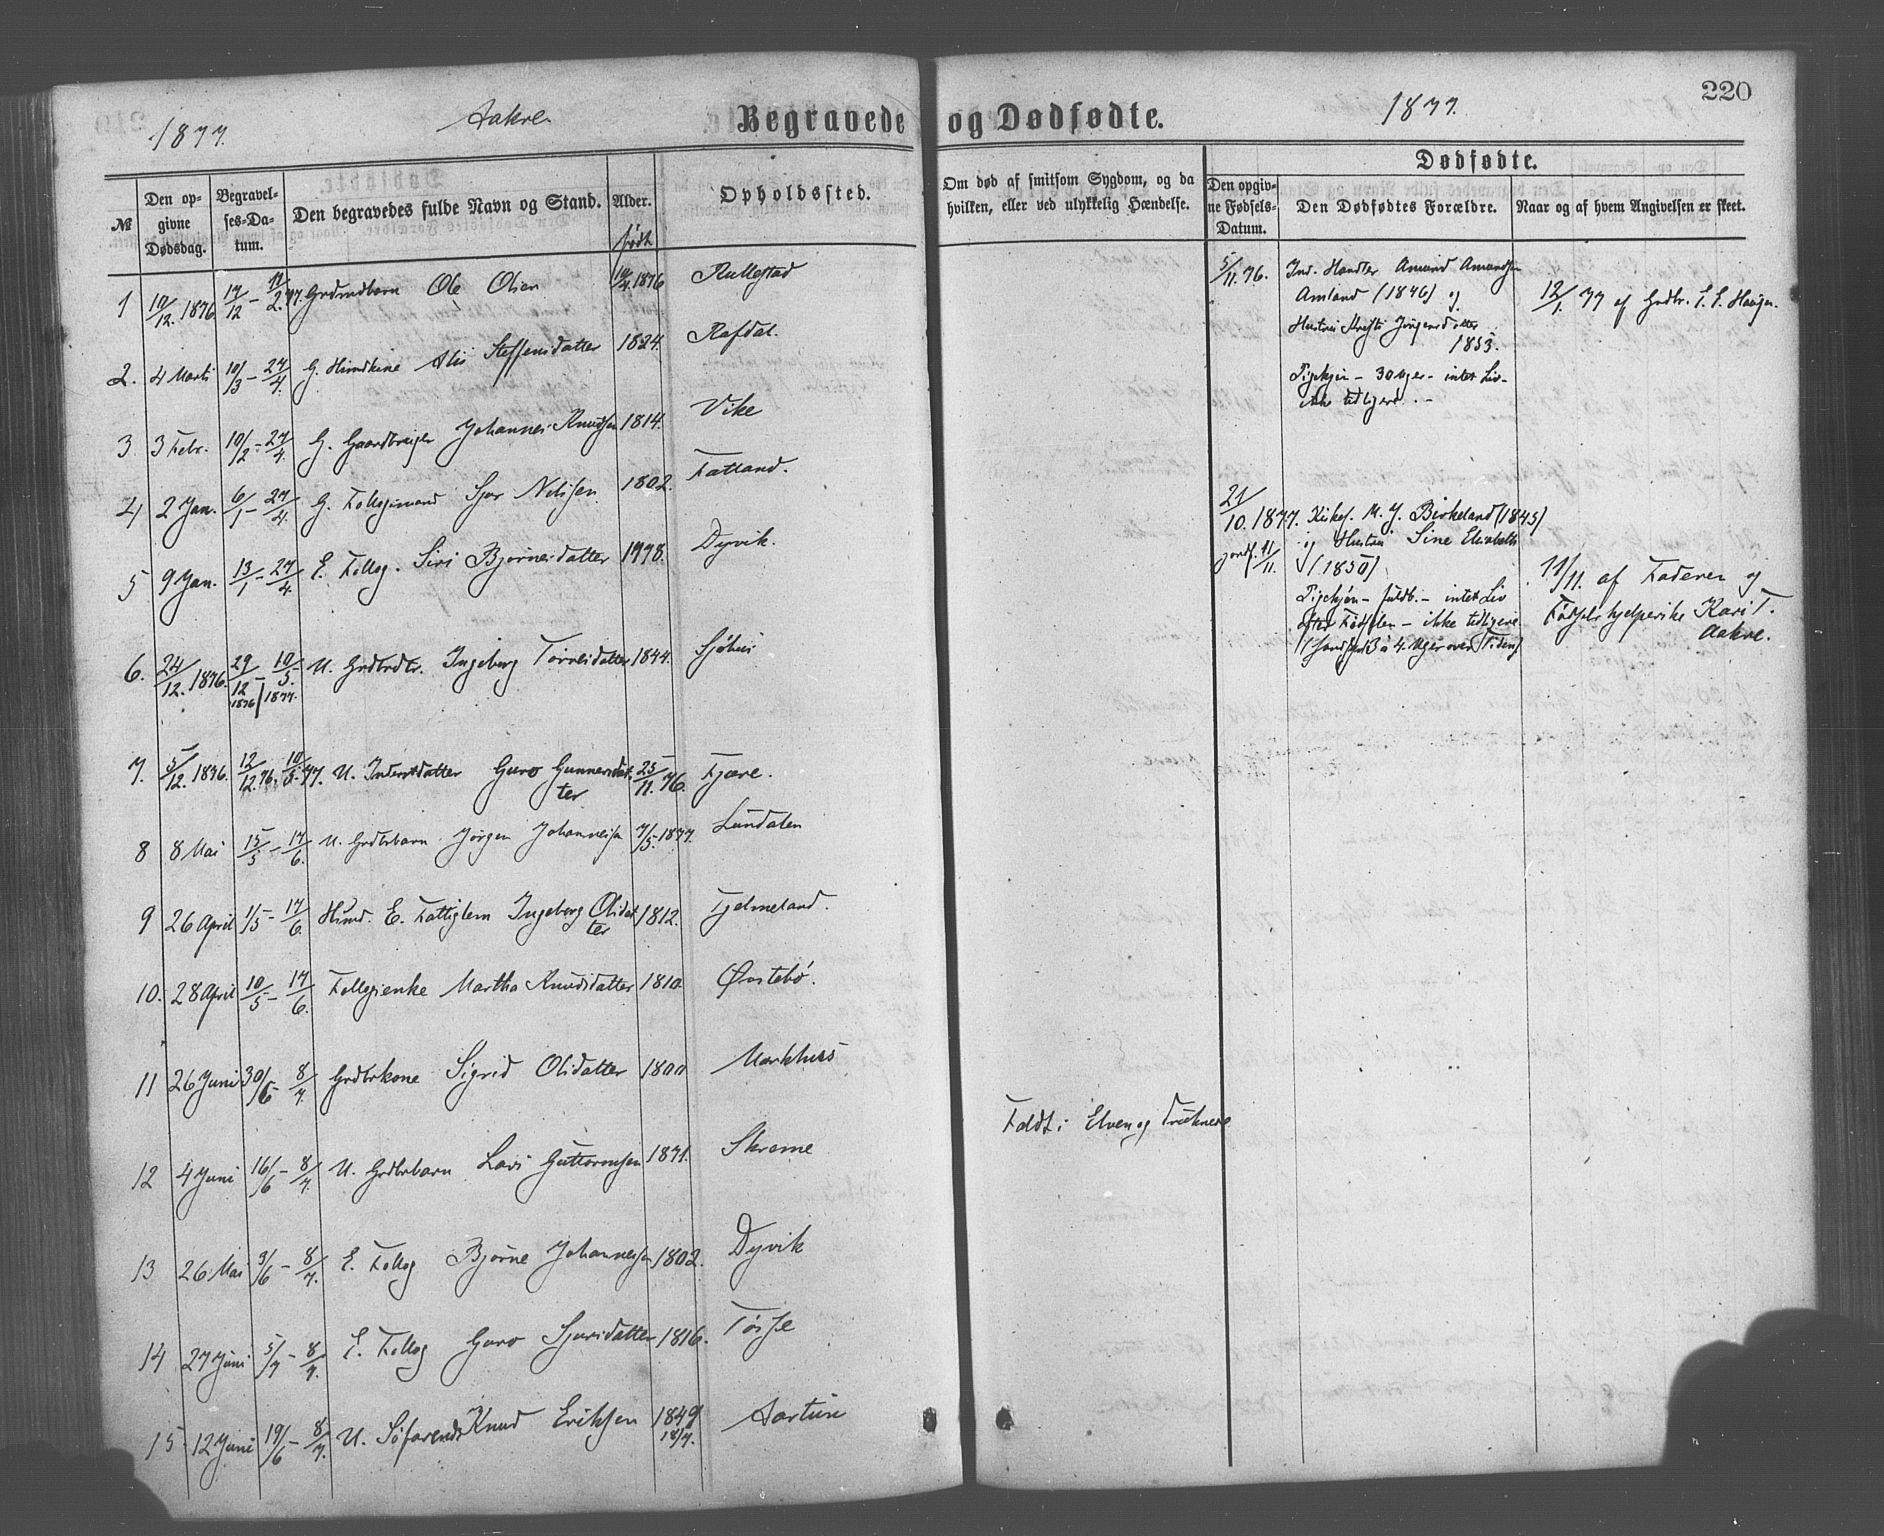 220
1877.
Aakre
Begravede og Dødfødte.
1877.
№
Den opgivne Dødsdag.
Begravelses-Datum.
Den begravedes fulde Navn og Stand.
Alder.
født
Opholdssted.
Om død af smitsom Sygdom, og da hvilken, eller ved ulykkelig Hændelse.
Dødfødte.
Den opgivne Fødsels-Datum.
Den Dødfødtes Forældre.
Naar og af hvem Angivelsen er skeet.
1 10/12. 1876 17/12 - 11/2. 77. Grdmdbarn Ole Olsen 1876 Rullestad
2. 4 Marts 10/3 - 27/4. G. Huuskone Steffensdatter 1824. Rafdal.
3 3 Febr. 10/2 - 27/4. G. Johannes Knudsen 1814. Vike
4 2 Jan. 6/1 - 27/4. G. Nilssen 1802. Fatland.
5 9 Jan. 13/1 - 27/4. E. Follog. Siri Bjørnesdatter 1798. Dyvik.
6. 24/12. 1876. 29/12 1876 - 10/5. 1877. U. Grdbrdtr. Ingeborg Torresdatter 1844. Sjøhus
7. 5/12. 1876. 12/12. 76. 10/5. 77. U. Inderstdatter Guro Gunnarsdatter 25/11. 76. Fjære.
8 8 Mai 15/5 - 17/6. U. Grdbrbarn Jørgen Johannessen 7/5. 1877. Lundalen
9 26 April 1/5 - 17/6. E. Fattiglem Ingeborg Olsdatter 1812. Fjelmeland.
10. 28 April 10/5 - 17/6. Follogienke Martha Knudsdatter 1810. Østebø.
11 26 Juni 30/6 - 8/7. Grdbrkone Sigrid Olsdatter 1800 Markhus
12 4 Juni 16/6 - 8/7. U. Grdbrbarn Lars Guttormsen 1871. Skrome
Faldt i Elven og druknede
13 26 Mai 3/6 - 8/7. E. Follog Bjørne Johannessen 1802. Dyvik
14 27 Juni 5/7 - 8/7. E. Follog Guro Sjursdatter 1816.
15 12 Juni 19/6 - 8/7. U. Søfarende Knud Eriksen 1849 18/7. Aartun
5/11. 76. Ind. Handler Amund Amundsen
Amland (1846) og
Hustru Jørgensdatter
1853.
Pigekjøn - 30 Uger - intet Liv -
ikke tidligere. -
12/1. 77 af Grdbr. Haugen.
21/10. 1877. Kirkes. M. J. Birkeland (1845)
jordf. 11/11. og Hustru Sine Elisabeth
(1850)
Pigekjøn - fuldb. - intet Liv
efter Fødselen - ikke tidligere
3 à 4 Uger over Tiden)
11/11. af Faderen og
Fødselshjelperske Kari T.
Aakre.